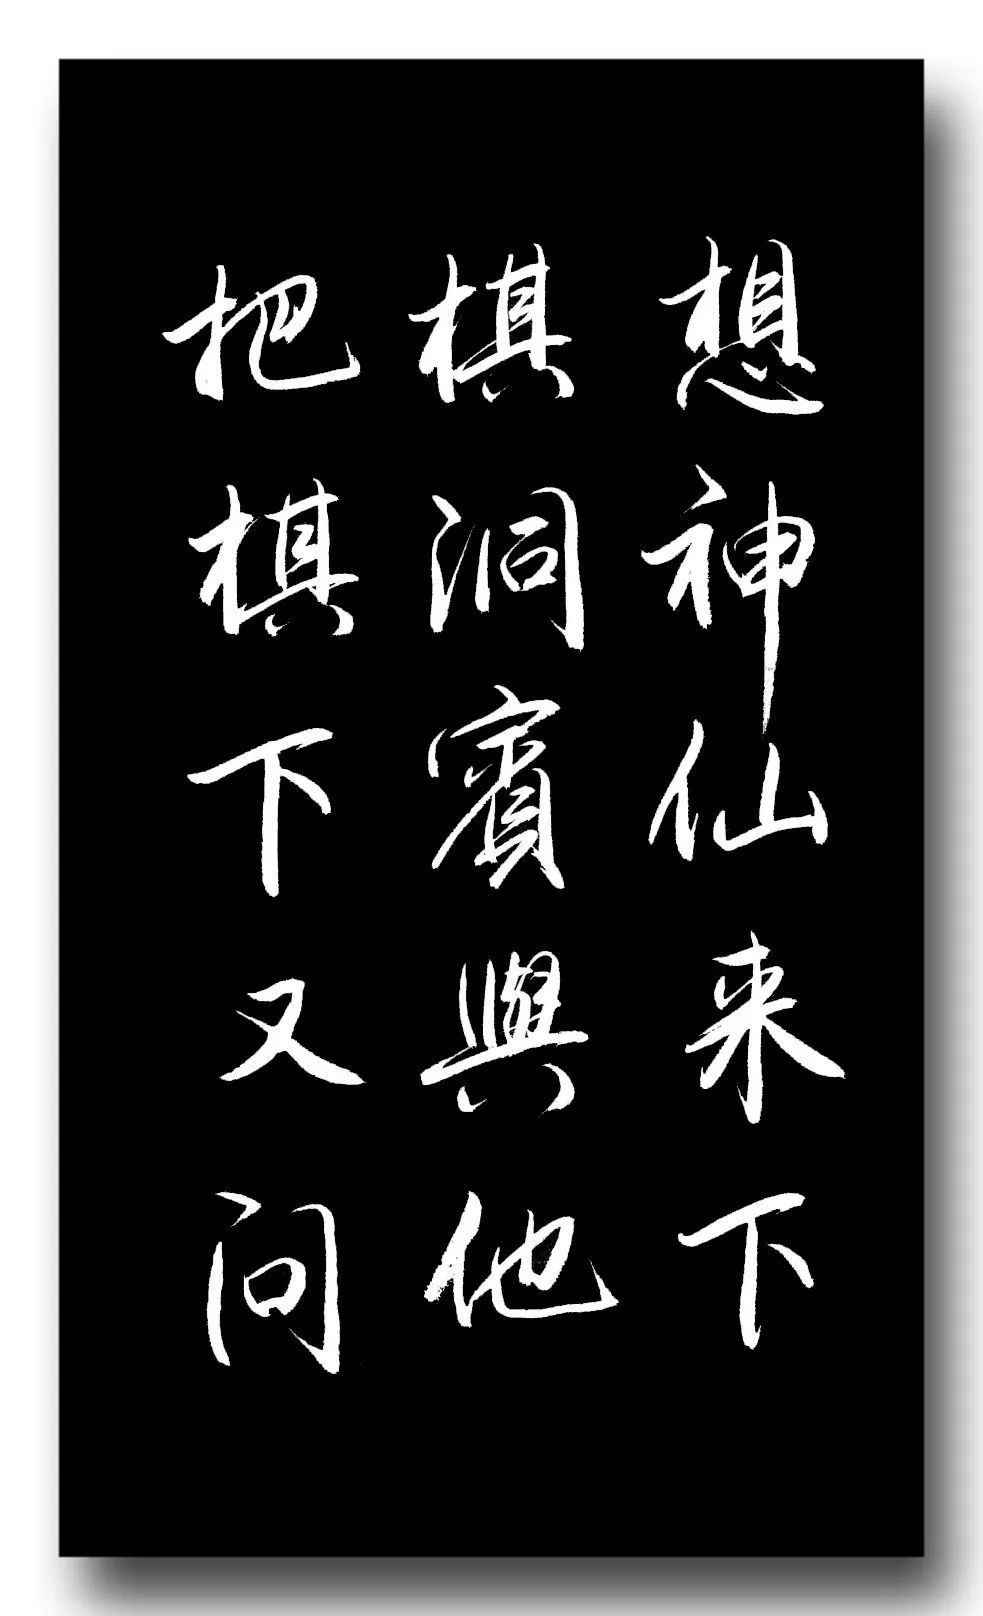 想神仙来下
棋洞賓與他
把棋下又问